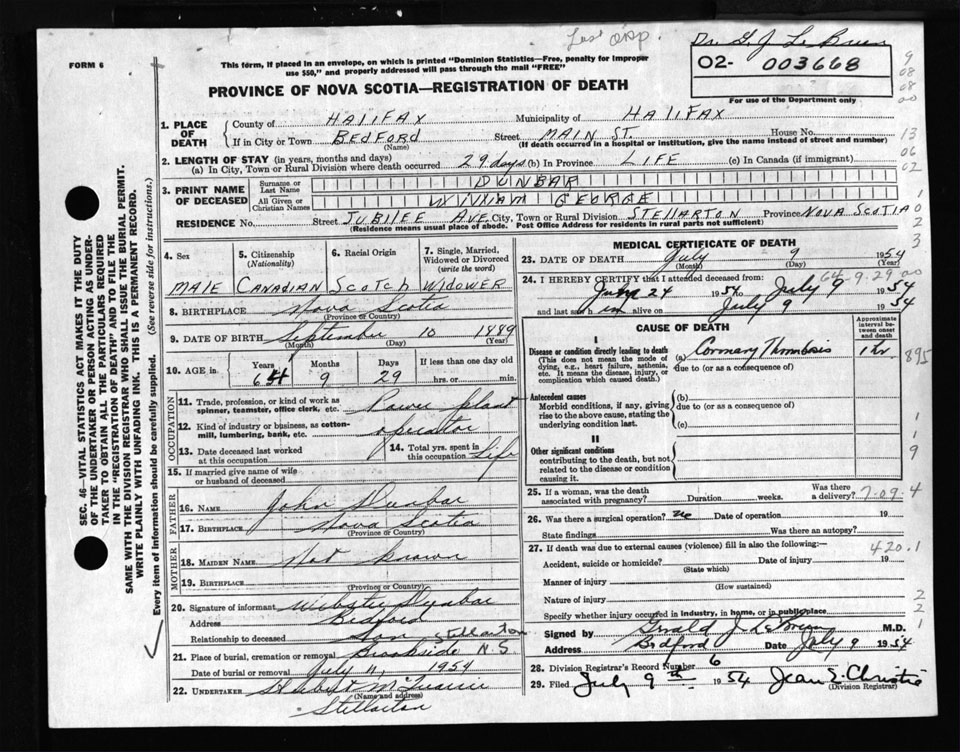 Dr. G. J. LeBrun
FORM 6
This form, if placed in an envelope, on which is printed "Dominion Statistics—Free, penalty for improper
use $50," and properly addressed will pass through the mail "FREE"
02- 003668
For use of the Department only
PROVINCE OF NOVA SCOTIA—REGISTRATION OF DEATH
1. PLACE OF DEATH
County of HALIFAX Municipality of HALIFAX
If in City or Town BEDFORD Street MAIN ST. House No.
(Name) (If death occurred in a hospital or institution, give the name instead of street and number)
2. LENGTH OF STAY (in years, months and days)
(a) In City, Town or Rural Division where death occurred 29 days (b) In Province LIFE (c) In Canada (if immigrant)
3. PRINT NAME OF DECEASED
Surname or Last Name DUNBAR
All Given or Christian Names WILLIAM GEORGE
RESIDENCE No. Street JUBILEE AVE. City, Town or Rural Division STELLARTON Province NOVA SCOTIA
(Residence means usual place of abode. Post Office Address for residents in rural parts not sufficient)
4. Sex 5. Citizenship (Nationality) 6. Racial Origin 7. Single, Married, Widowed or Divorced (write the word)
MALE CANADIAN SCOTCH WIDOWER
8. BIRTHPLACE Nova Scotia
(Province or Country)
9. DATE OF BIRTH September 10 1889
(Month) (Day) (Year)
10. AGE in Years Months Days If less than one day old
64 9 29 hrs. or min.
OCCUPATION
11. Trade, profession, or kind of work as spinner, teamster, office clerk, etc. Power plant
12. Kind of industry or business, as cotton-mill, lumbering, bank, etc. operator
13. Date deceased last worked at this occupation 14. Total yrs. spent in this occupation Life
15. If married give name of wife or husband of deceased
FATHER
16. NAME John Dunbar
17. BIRTHPLACE Nova Scotia
(Province or Country)
MOTHER
18. MAIDEN NAME Not known
19. BIRTHPLACE
(Province or Country)
20. Signature of informant Webster Dunbar
Address Bedford
Relationship to deceased Son Stellarton
21. Place of burial, cremation or removal Brookside N.S.
Date of burial or removal July 11, 1954
22. UNDERTAKER
(Name and address)
Stellarton
MEDICAL CERTIFICATE OF DEATH
23. DATE OF DEATH July 9 1954
(Month) (Day) (Year)
64-9-29
24. I HEREBY CERTIFY that I attended deceased from:
June 24 1954 to July 9 1954
and last saw him alive on July 9 1954
CAUSE OF DEATH
Approximate interval between onset and death
I
Disease or condition directly leading to death (a) Coronary Thrombosis 1 hr
(This does not mean the mode of dying, e.g., heart failure, asthenia, etc. It means the disease, injury, or complication which caused death.)
due to (or as a consequence of)
Antecedent causes
Morbid conditions, if any, giving rise to the above cause, stating the underlying condition last.
(b)
due to (or as a consequence of)
(c)
II
Other significant conditions
contributing to the death, but not related to the disease or condition causing it.
25. If a woman, was the death associated with pregnancy? Duration weeks. Was there a delivery?
26. Was there a surgical operation? no Date of operation 19
State findings Was there an autopsy?
27. If death was due to external causes (violence) fill in also the following:— 420.1
Accident, suicide or homicide? Date of injury 19
(State which)
Manner of injury
(How sustained)
Nature of injury
Specify whether injury occurred in industry, in home, or in public place
Signed by Gerald J. LeBrun M.D.
Address Bedford Date July 9 1954
28. Division Registrar's Record Number 6
29. Filed July 9th 1954 Jean E. Christie
(Division Registrar)
SEC. 46—VITAL STATISTICS ACT MAKES IT THE DUTY
OF THE UNDERTAKER OR PERSON ACTING AS UNDER-
TAKER TO OBTAIN ALL THE PARTICULARS REQUIRED
IN THE "REGISTRATION OF DEATH" AND TO FILE THE
SAME WITH THE DIVISION REGISTRAR WHO SHALL ISSUE THE BURIAL PERMIT.
WRITE PLAINLY WITH UNFADING INK. THIS IS A PERMANENT RECORD.
Every item of information should be carefully supplied. (See reverse side for instructions.)
9
08
08
00
13
06
02
1
0
2
3
895
1
1
9
4
2
2
1